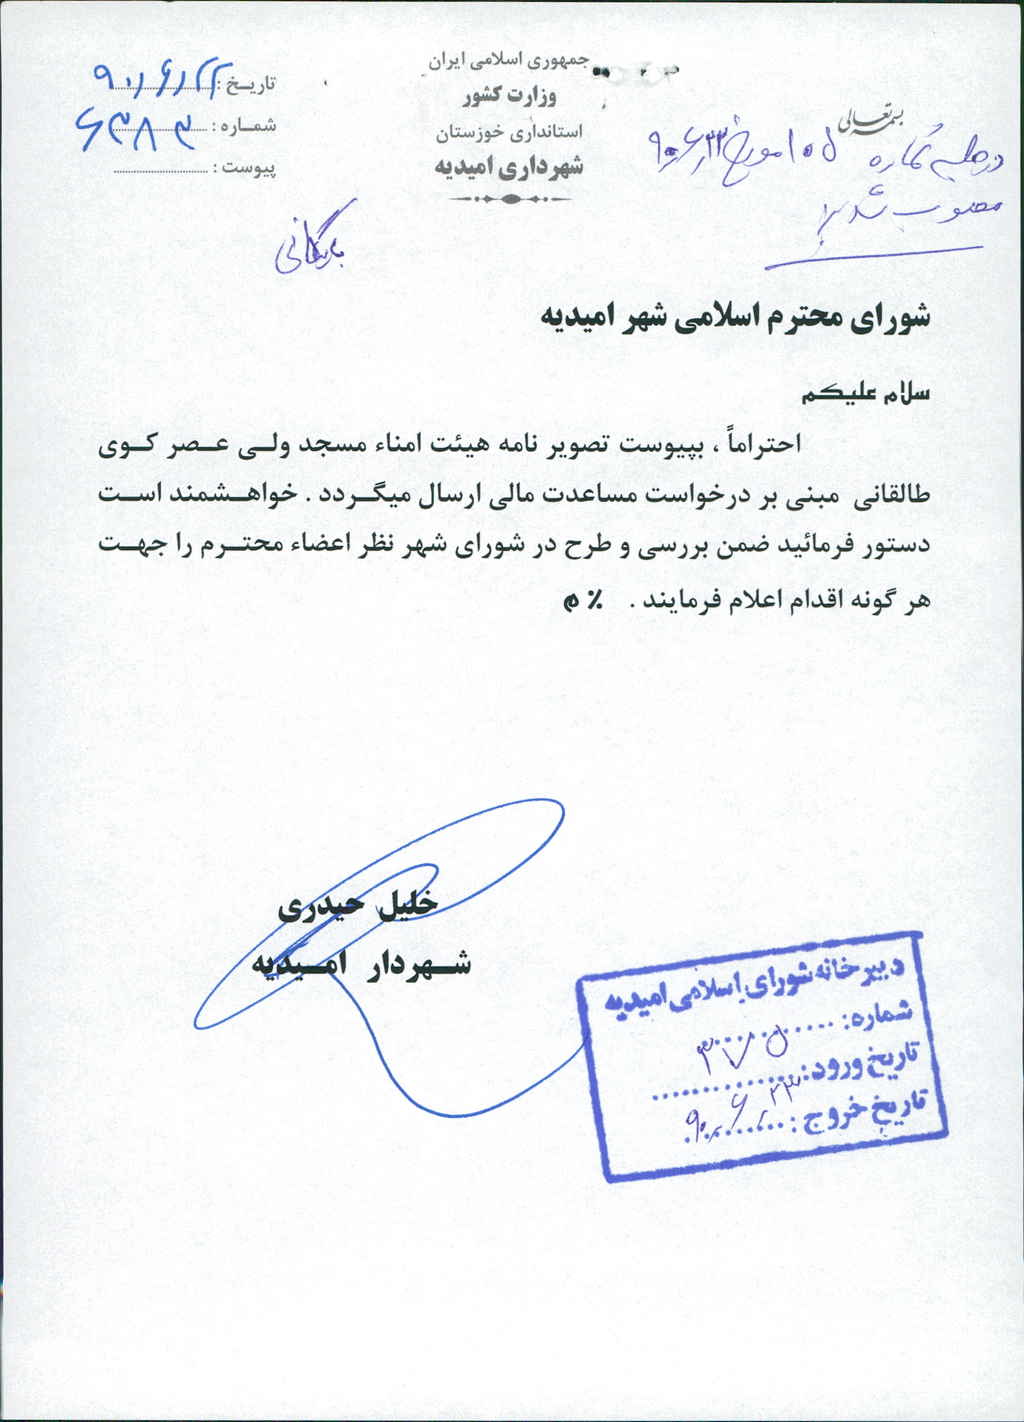 جمهوری اسلامی ایران
وزارت کشور
استانداری خوزستان
شهرداری امیدیه
بسمه تعالی
تاریخ : ۹۰/۶/۲۲
شماره : ۶۳۸۳
پیوست :
در جلسه شماره ۱۰۵ مورخ ۹۰/۶/۲۳
مصوب شد
بایگانی
شورای محترم اسلامی شهر امیدیه
سلام علیکم
احتراماً ، بپیوست تصویر نامه هیئت امناء مسجد ولی عصر کوی
طالقانی مبنی بر درخواست مساعدت مالی ارسال میگردد . خواهشمند است
دستور فرمائید ضمن بررسی و طرح در شورای شهر نظر اعضاء محترم را جهت
هر گونه اقدام اعلام فرمایند . ٪ م
خلیل حیدری
شهردار امیدیه
دبیرخانه شورای اسلامی امیدیه
شماره: ۳۷۵
تاریخ ورود:
تاریخ خروج : ۹۰/۶/۲۳